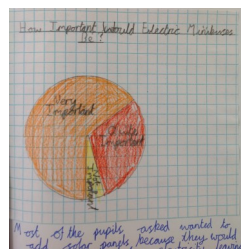 How Important Would Electric Minibuses
Be?
Very
Important
Quite
Important
Not
Important
Most of the pupils asked wanted to
add solar panels because they would